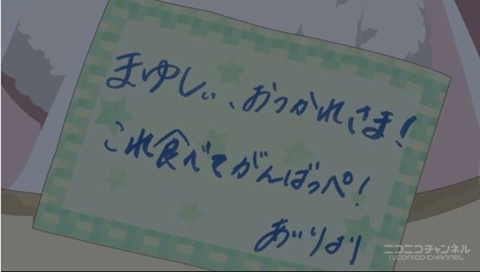 まゆしぃ、おつかれさま!
これ食べてがんばっぺ!
あいりより
ニコニコチャンネル
NICONICO CHANNEL